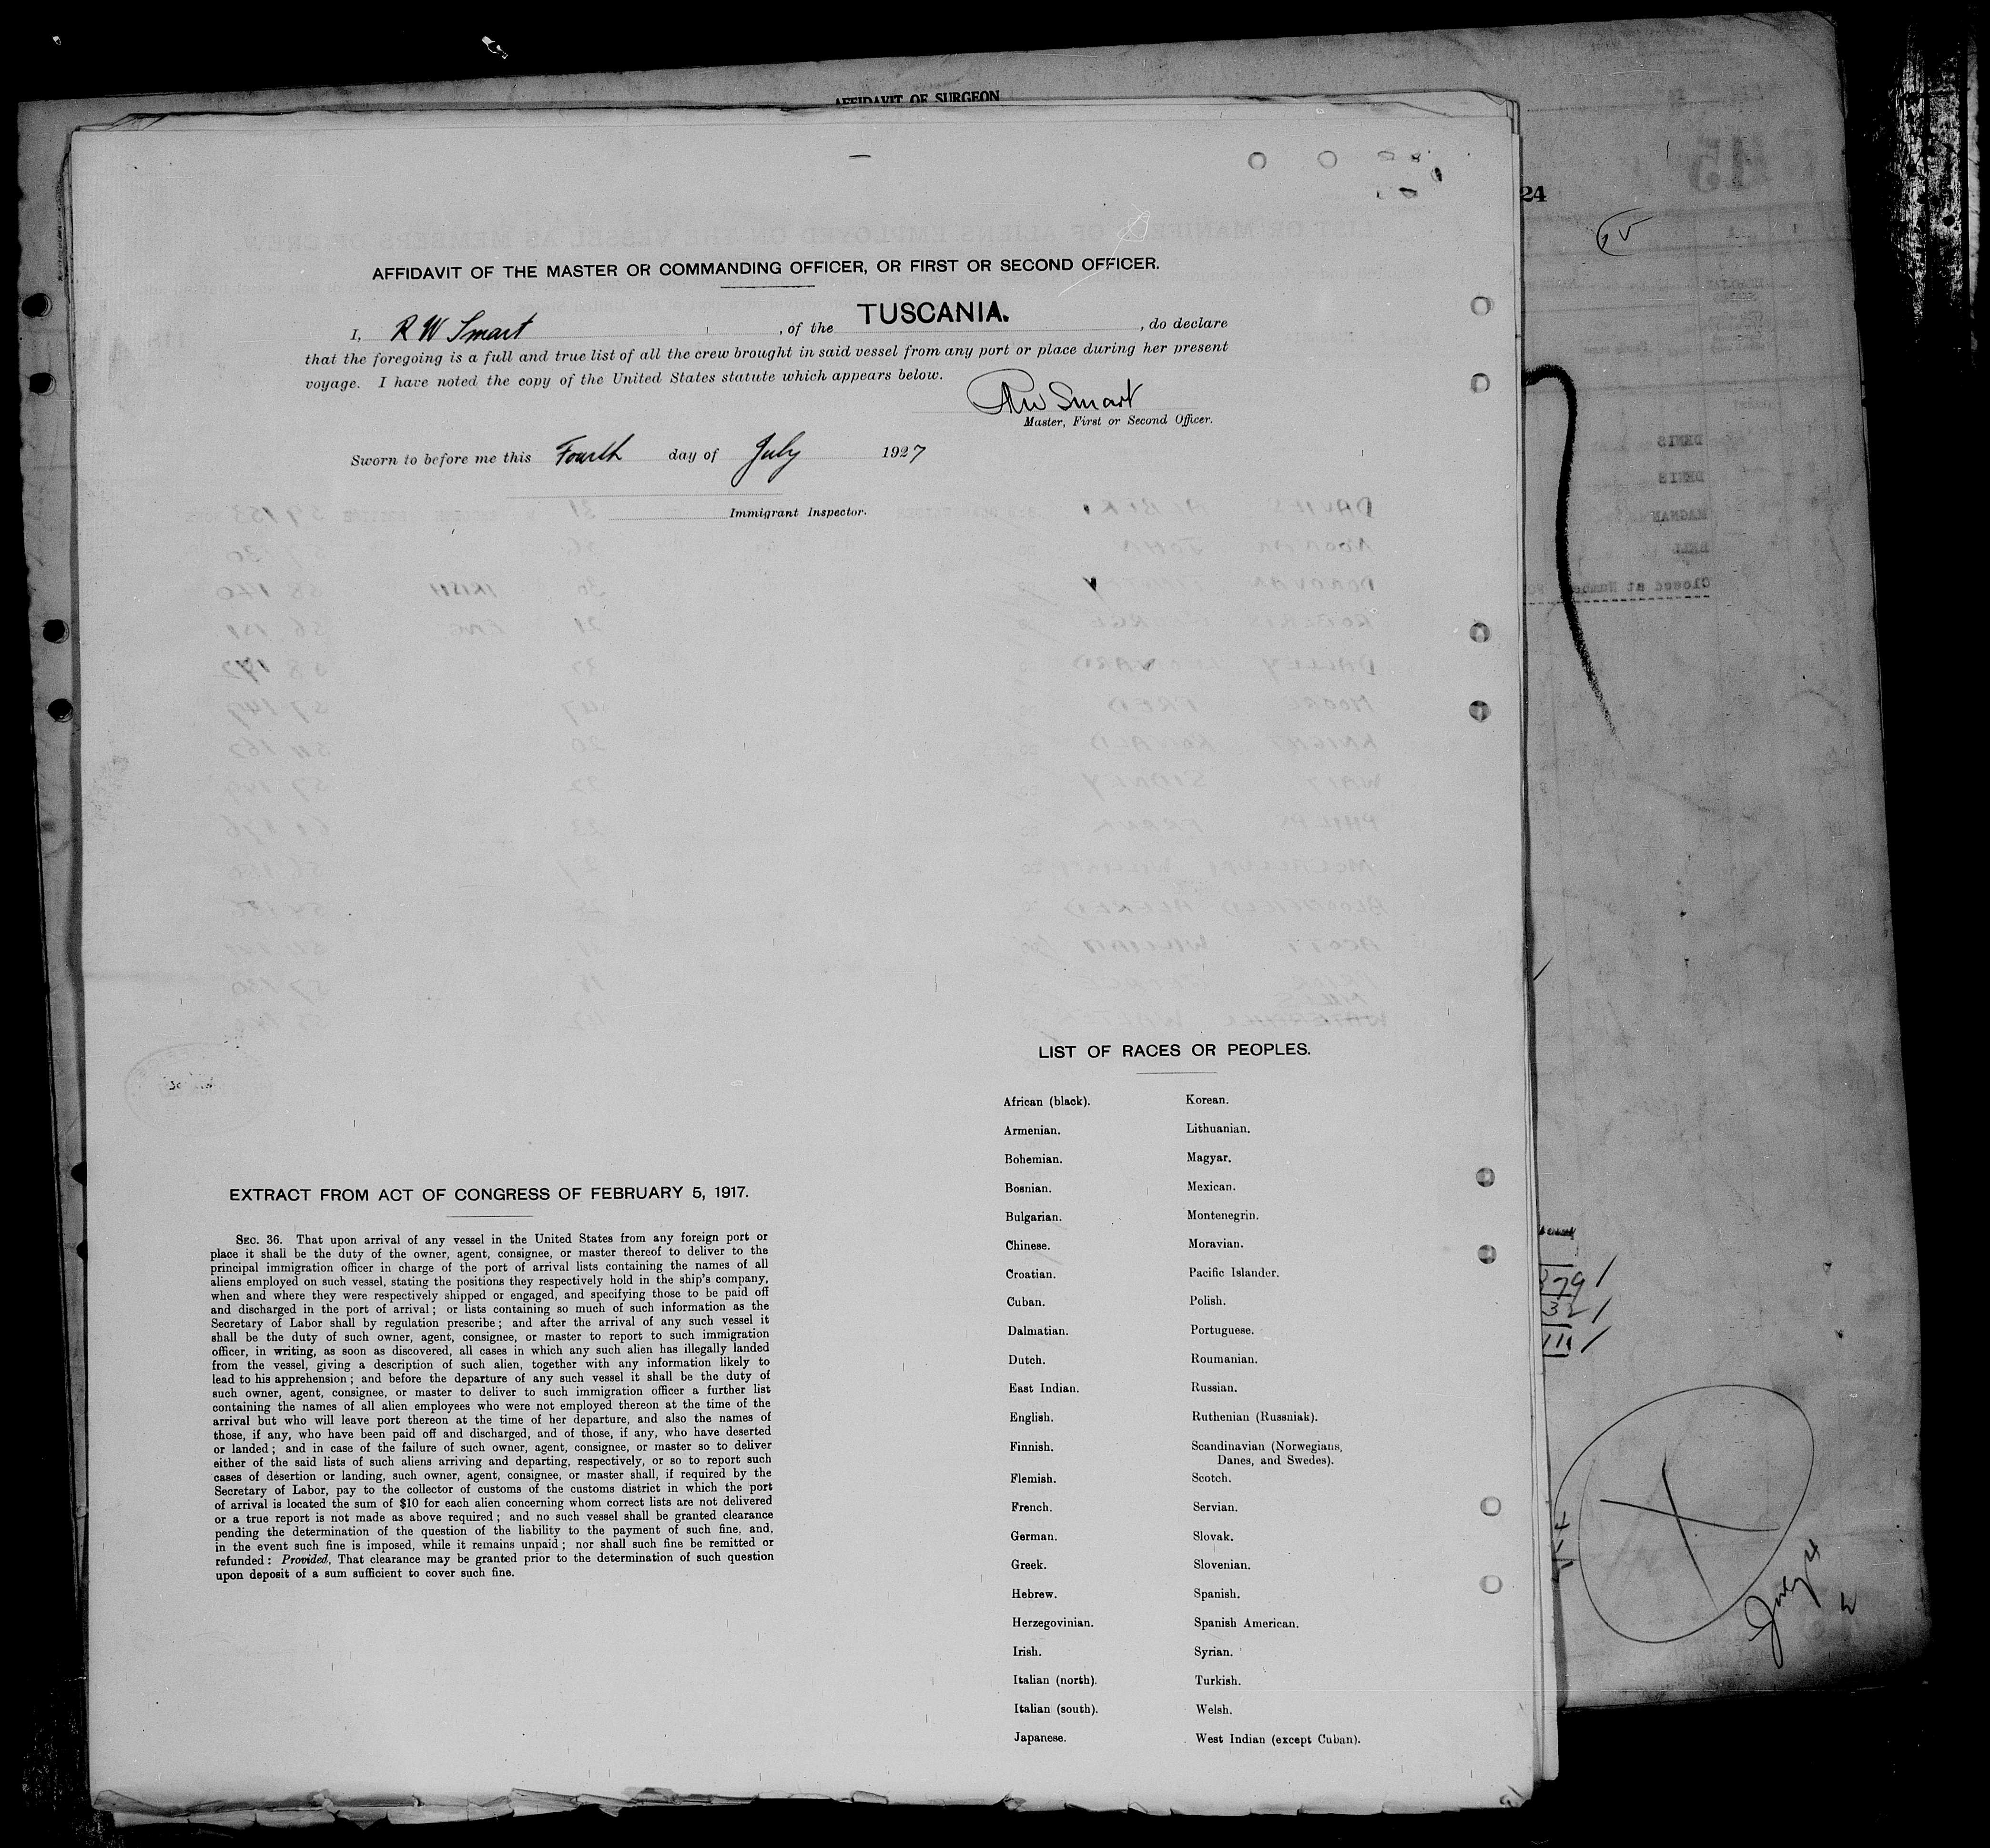 AFFIDAVIT OF SURGEON
24
AFFIDAVIT OF THE MASTER OR COMMANDING OFFICER, OR FIRST OR SECOND OFFICER.
I, R W Smart , of the TUSCANIA. , do declare
that the foregoing is a full and true list of all the crew brought in said vessel from any port or place during her present
voyage. I have noted the copy of the United States statute which appears below.
RW Smart
Master, First or Second Officer.
Sworn to before me this Fourth day of July 1927
Immigrant Inspector.
LIST OF RACES OR PEOPLES.
African (black). Korean.
Armenian. Lithuanian.
Bohemian. Magyar.
Bosnian. Mexican.
Bulgarian. Montenegrin.
Chinese. Moravian.
Croatian. Pacific Islander.
Cuban. Polish.
Dalmatian. Portuguese.
Dutch. Roumanian.
East Indian. Russian.
English. Ruthenian (Russniak).
Finnish. Scandinavian (Norwegians,
Danes, and Swedes).
Flemish. Scotch.
French. Servian.
German. Slovak.
Greek. Slovenian.
Hebrew. Spanish.
Herzegovinian. Spanish American.
Irish. Syrian.
Italian (north). Turkish.
Italian (south). Welsh.
Japanese. West Indian (except Cuban).
EXTRACT FROM ACT OF CONGRESS OF FEBRUARY 5, 1917.
SEC. 36. That upon arrival of any vessel in the United States from any foreign port or
place it shall be the duty of the owner, agent, consignee, or master thereof to deliver to the
principal immigration officer in charge of the port of arrival lists containing the names of all
aliens employed on such vessel, stating the positions they respectively hold in the ship's company,
when and where they were respectively shipped or engaged, and specifying those to be paid off
and discharged in the port of arrival; or lists containing so much of such information as the
Secretary of Labor shall by regulation prescribe; and after the arrival of any such vessel it
shall be the duty of such owner, agent, consignee, or master to report to such immigration
officer, in writing, as soon as discovered, all cases in which any such alien has illegally landed
from the vessel, giving a description of such alien, together with any information likely to
lead to his apprehension; and before the departure of any such vessel it shall be the duty of
such owner, agent, consignee, or master to deliver to such immigration officer a further list
containing the names of all alien employees who were not employed thereon at the time of the
arrival but who will leave port thereon at the time of her departure, and also the names of
those, if any, who have been paid off and discharged, and of those, if any, who have deserted
or landed; and in case of the failure of such owner, agent, consignee, or master so to deliver
either of the said lists of such aliens arriving and departing, respectively, or so to report such
cases of desertion or landing, such owner, agent, consignee, or master shall, if required by the
Secretary of Labor, pay to the collector of customs of the customs district in which the port
of arrival is located the sum of $10 for each alien concerning whom correct lists are not delivered
or a true report is not made as above required; and no such vessel shall be granted clearance
pending the determination of the question of the liability to the payment of such fine, and,
in the event such fine is imposed, while it remains unpaid; nor shall such fine be remitted or
refunded: Provided, That clearance may be granted prior to the determination of such question
upon deposit of a sum sufficient to cover such fine.
July 4